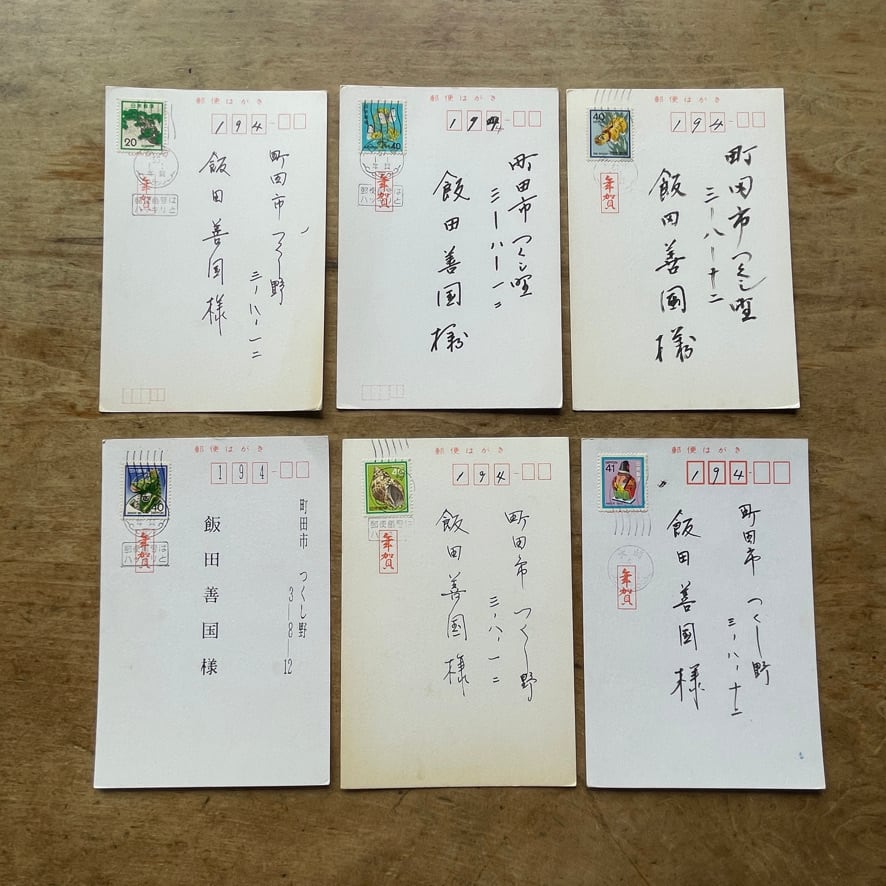 郵便はがき
日本郵便
20
194-
年賀
郵便番号は
ハッキリと
町田市 つくし野
三-八-一二
飯田善国様
郵便はがき
40
194
年賀
郵便番号は
ハッキリと
町田市つくし野
三-八-一二
飯田善国様
郵便はがき
40
194-
年賀
町田市つくし野
三-八-十二
飯田善国様
郵便はがき
40
194-
年賀
郵便番号は
ハッキリと
町田市 つくし野
3-8-12
飯田善国様
郵便はがき
40
194-
年賀
郵便番号は
町田市 つくし野
三-八-一二
飯田善国様
郵便はがき
41
194-
年賀
町田市 つくし野
三-八-十二
飯田善国様